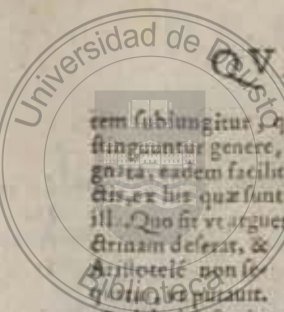 Universidad de Deusto
QV
tem ſubiungitur, q
ſtinguuntur genere,
gnata, eadem facilit
ctis, ex his quæ ſunt
ill. Quo fit vt arguer
ctrinam deſerat, &
Ariſtotelé non
vt putauit.
Biblioteca